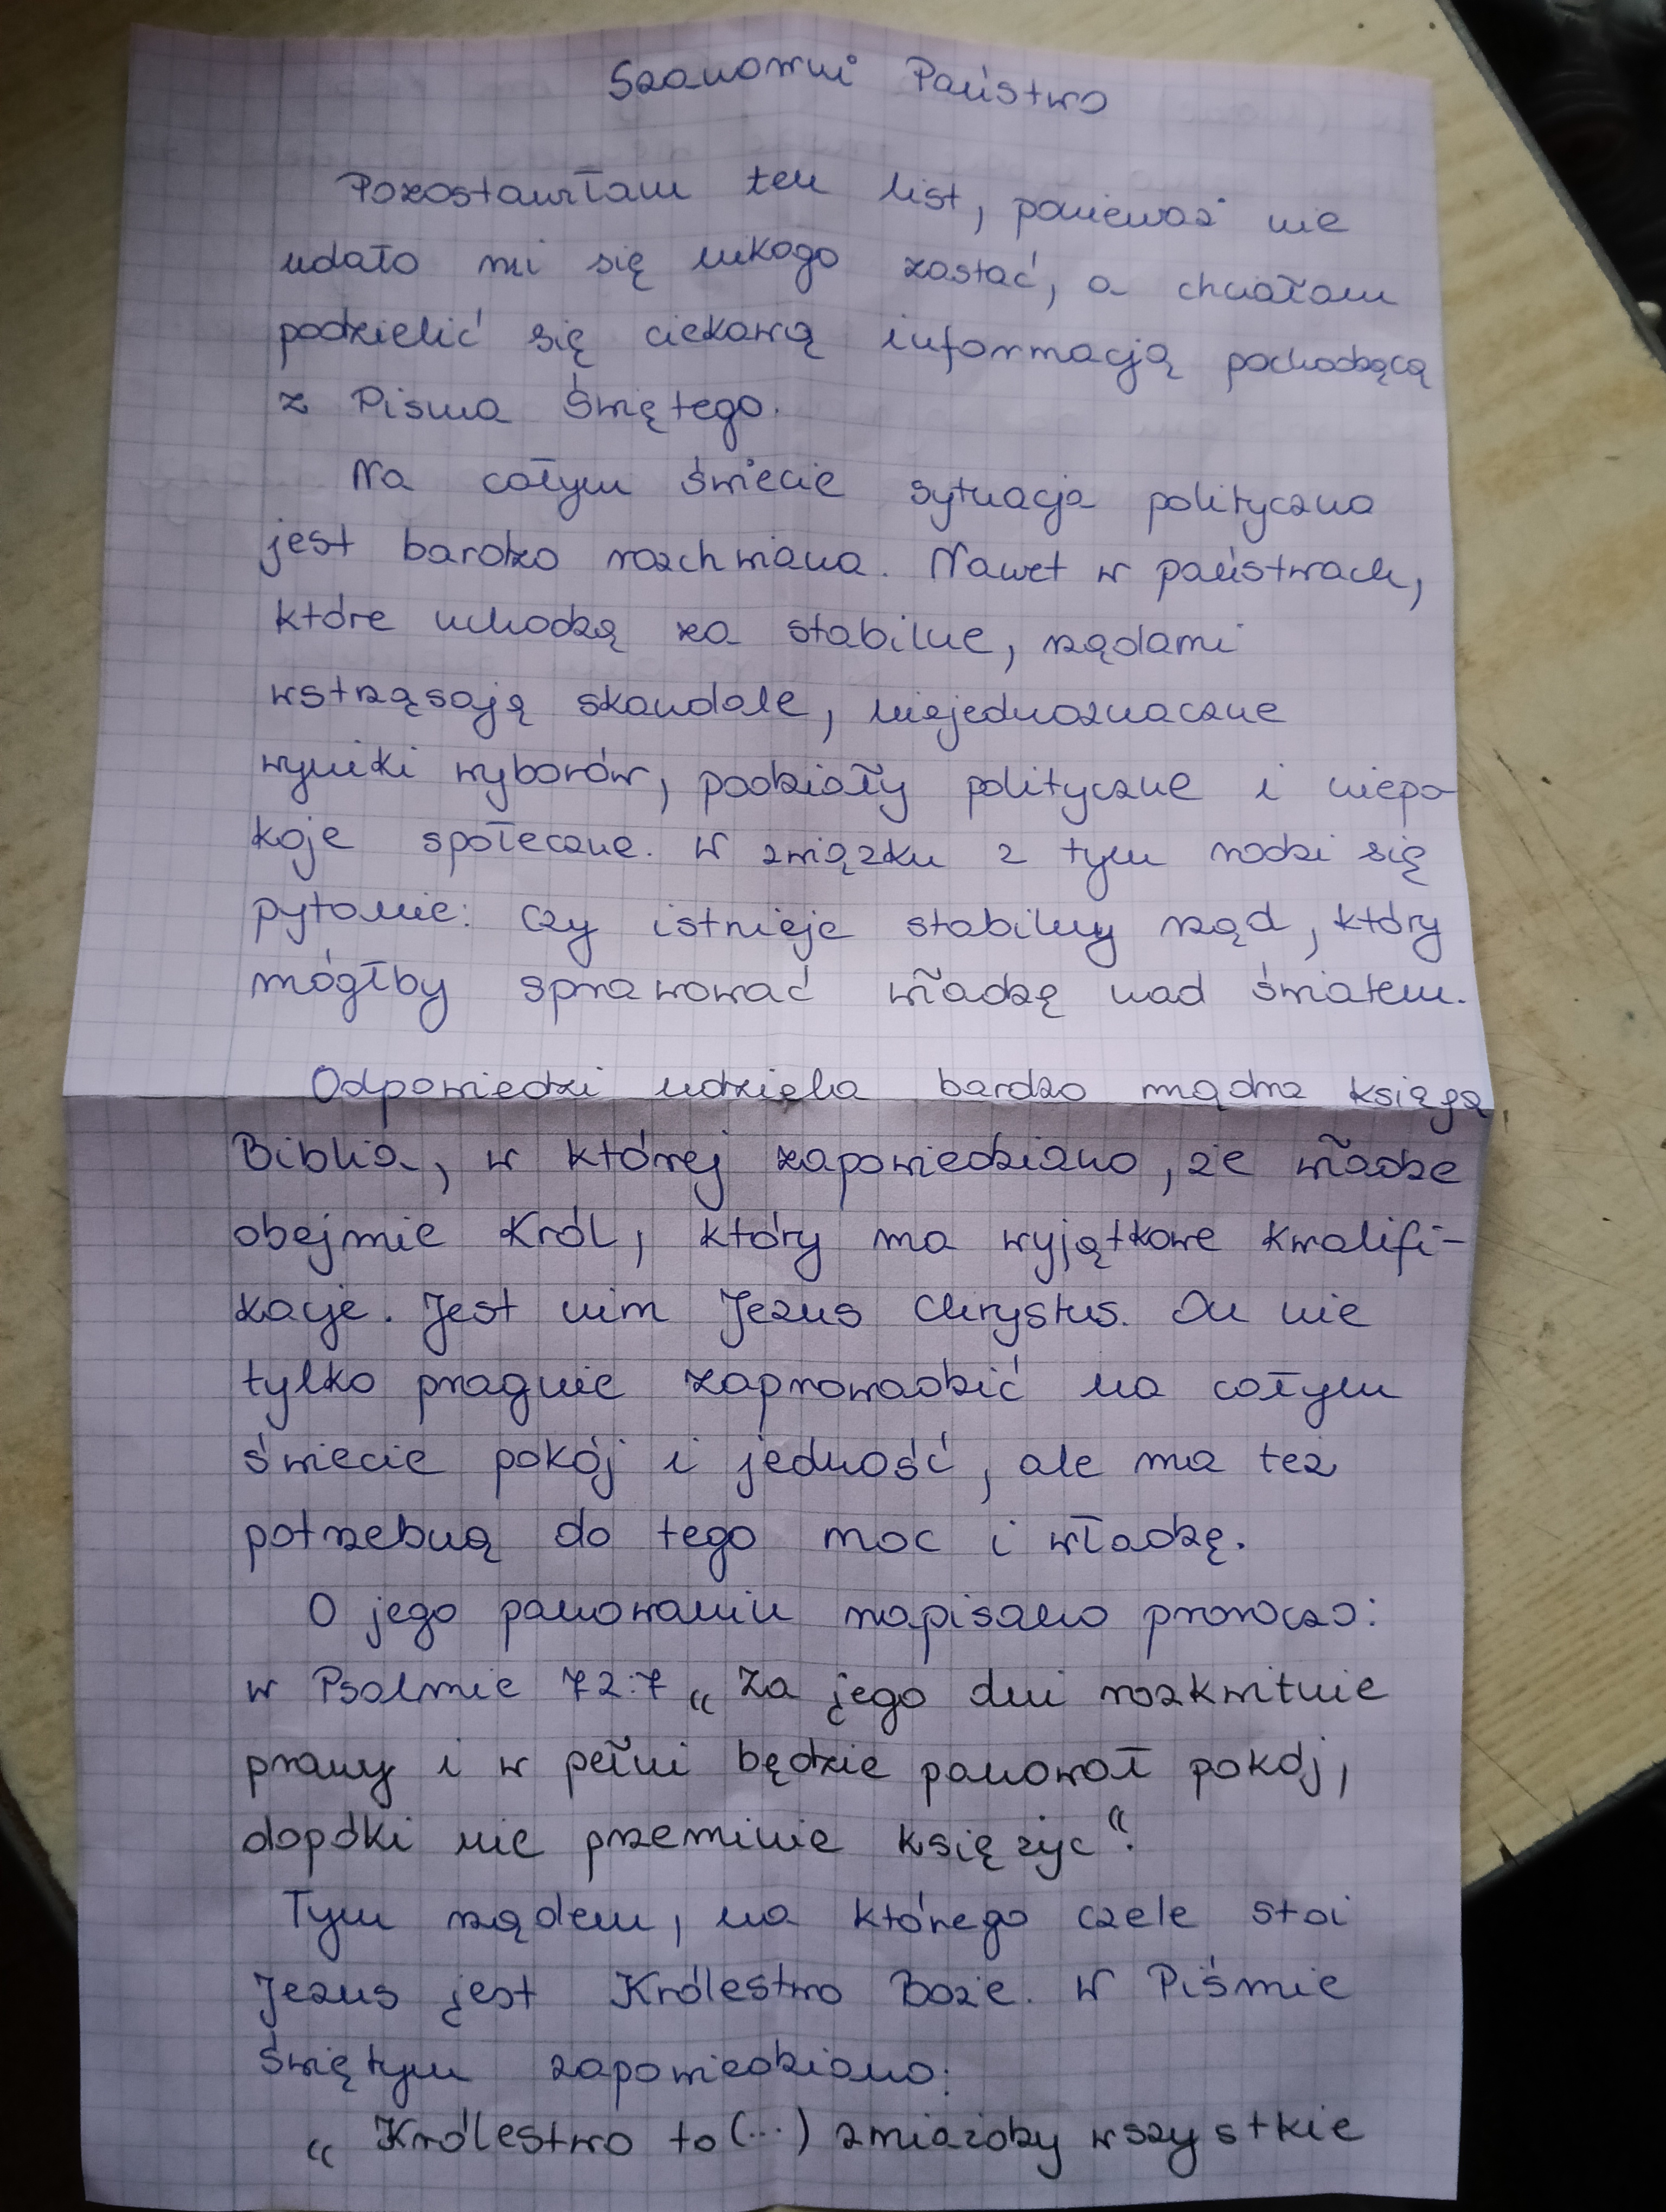 Szanowni Państwo
Pozostawiłam ten list, ponieważ nie
udało mi się nikogo zastać, a chciałam
podzielić się ciekawą informacją pochodzącą
z Pisma Świętego.
Na całym świecie sytuacja polityczna
jest bardzo rozchwiana. Nawet w państwach,
które uchodzą za stabilne, rządami
wstrząsają skandale, niejednoznaczne
wyniki wyborów, podziały polityczne i niepo-
koje społeczne. W związku z tym rodzi się
pytanie: Czy istnieje stabilny rząd, który
mógłby sprawować władzę nad światem.
Odpowiedzi udziela bardzo mądra księga,
Biblia, w której zapowiedziano, że władze
obejmie Król, który ma wyjątkowe kwalifi-
kacje. Jest nim Jezus Chrystus. On nie
tylko pragnie zaprowadzić na całym
świecie pokój i jedność, ale ma też
potrzebną do tego moc i władzę.
O jego panowaniu napisano proroczo:
w Psalmie 72:7 „Za jego dni rozkwitnie
prawy i w pełni będzie panował pokój,
dopóki nie przeminie księżyc“.
Tym rządem, na którego czele stoi
Jezus jest Królestwo Boże. W Piśmie
Świętym zapowiedziano:
„Królestwo to (...) zmiażdży wszystkie